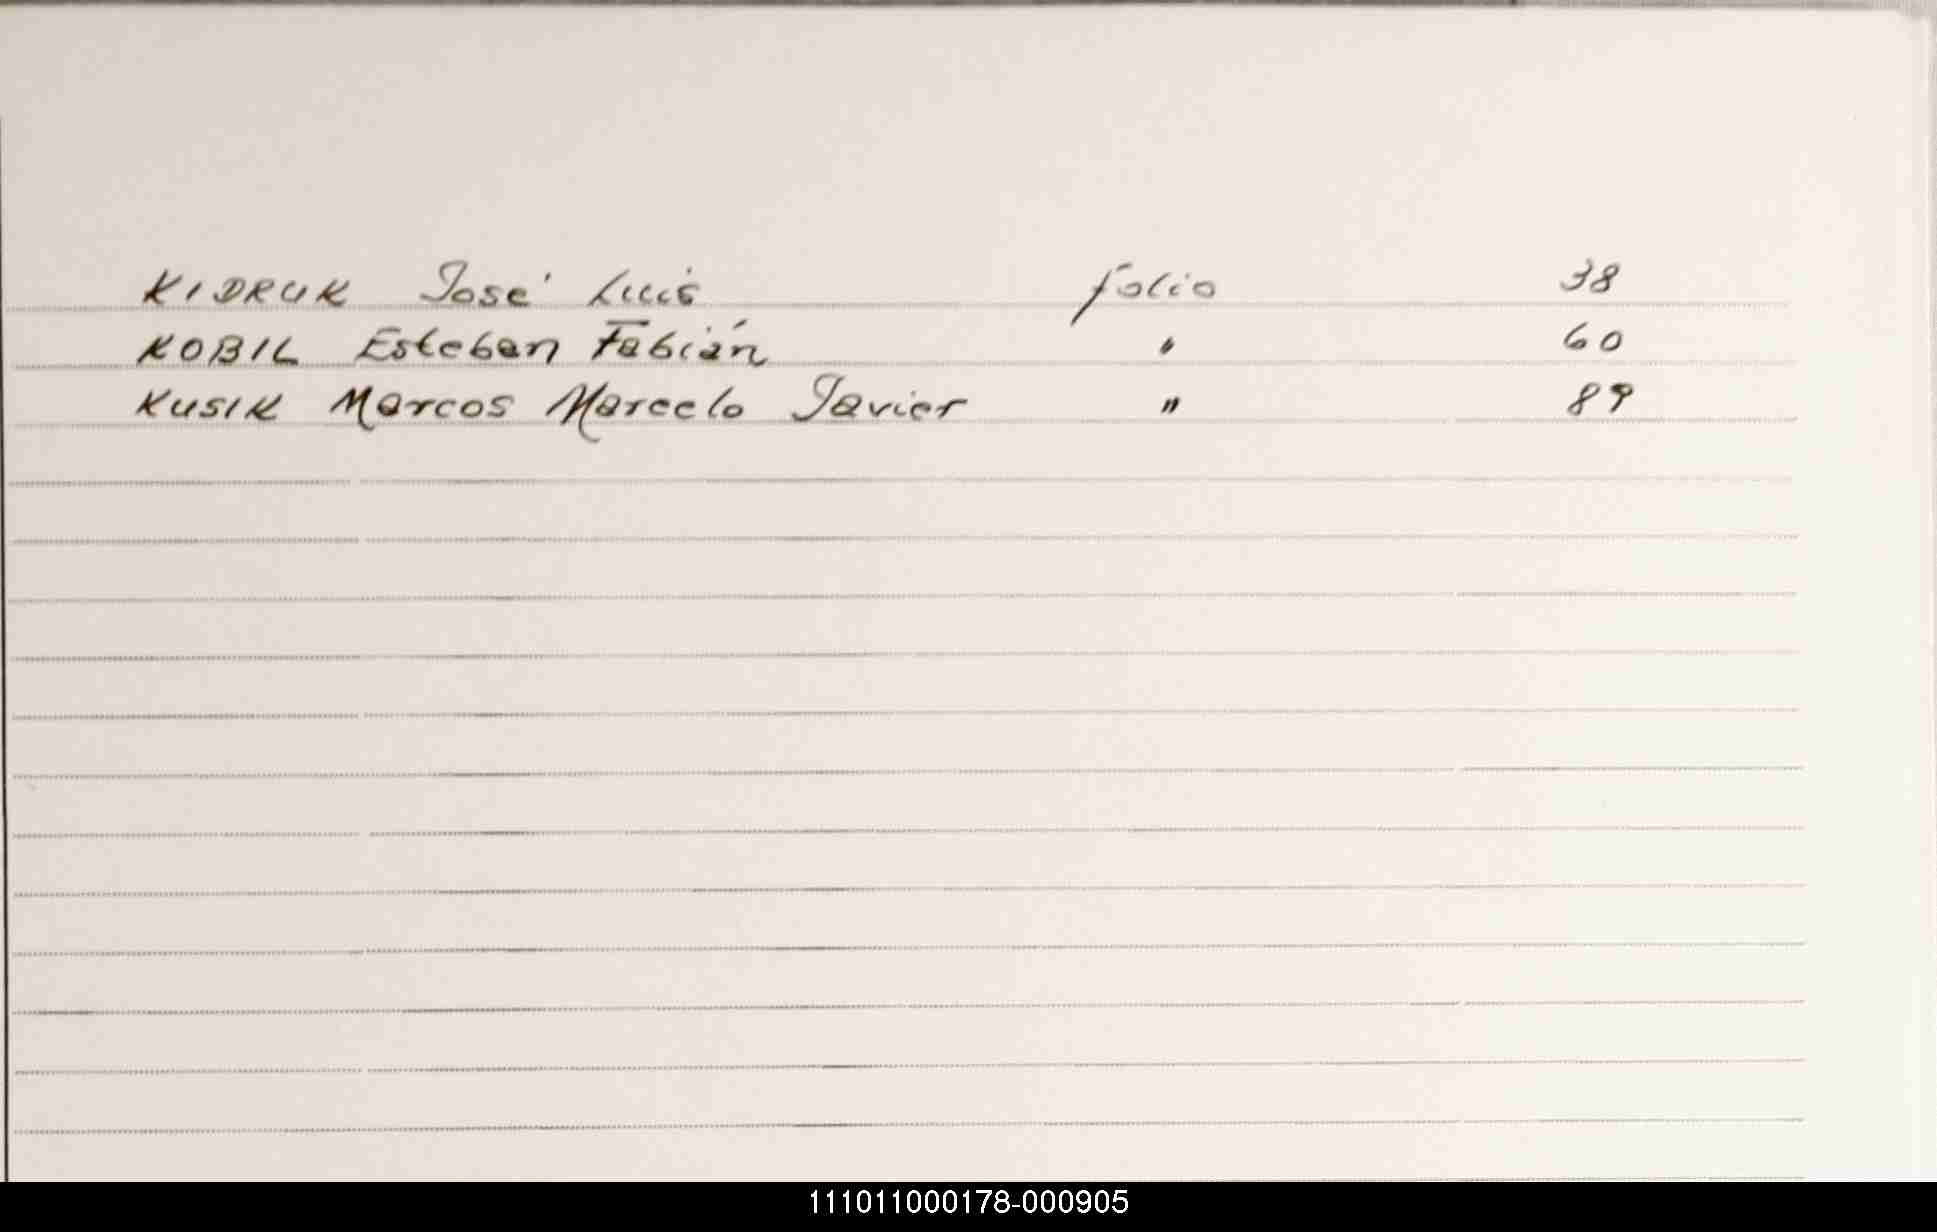 KIDRUK José Luis folio 38
KOBIL Esteban Fabián " 60
KUSIK Marcos Marcelo Javier " 89
111011000178-000905